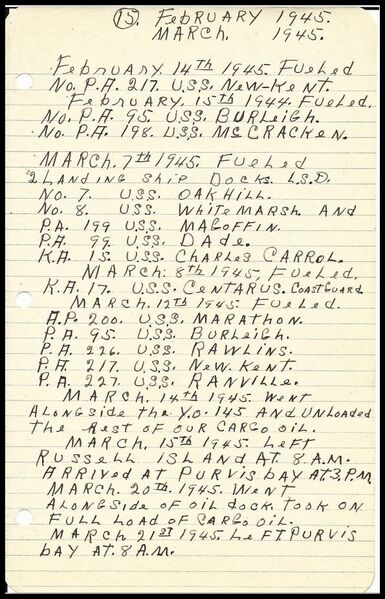 15. FEBRUARY 1945.
MARCH. 1945.
FEBRUARY. 14TH 1945. FUELED
NO. P.A. 217. U.S.S. NEW-KENT.
FEBRUARY. 15TH 1944. FUELED.
NO. P.A. 95. U.S.S. BURLEIGH.
NO. P.A. 198. U.S.S. MCCRACKEN.
MARCH. 7th 1945. FUELED
2 LANDING SHIP DOCKS. L.S.D.
NO. 7. USS. OAKHILL.
NO. 8. USS. WHITEMARSH AND
P.A. 199 USS MAGOFFIN.
P.A. 99. U.S.S. DADE.
K.A. 15. U.S.S. CHARLES CARROL.
MARCH. 8th 1945. FUELED.
K.A. 17. U.S.S. CENTARUS. COAST GUARD
MARCH. 12TH 1945. FUELED.
A.P. 200. U.S.S. MARATHON.
P.A. 95. U.S.S. BURLEIGH.
P.A. 226. U.S.S. RAWLINS.
P.A. 217. U.S.S. NEW. KENT.
P.A. 227. U.S.S. RANVILLE.
MARCH. 14TH 1945. WENT
ALONGSIDE the Y.O. 145 AND UNLOADED
the REST OF OUR CARGO OIL.
MARCH. 15TH 1945. LEFT
RUSSELL ISLAND AT. 8 A.M.
ARRIVED AT PURVIS BAY AT. 3.P.M.
MARCH. 20TH 1945. WENT
ALONGSIDE OF OIL DOCK. TOOK ON
FULL LOAD OF CARGO OIL.
MARCH 21ST 1945. LEFT. PURVIS
bAY AT. 8 A.M.